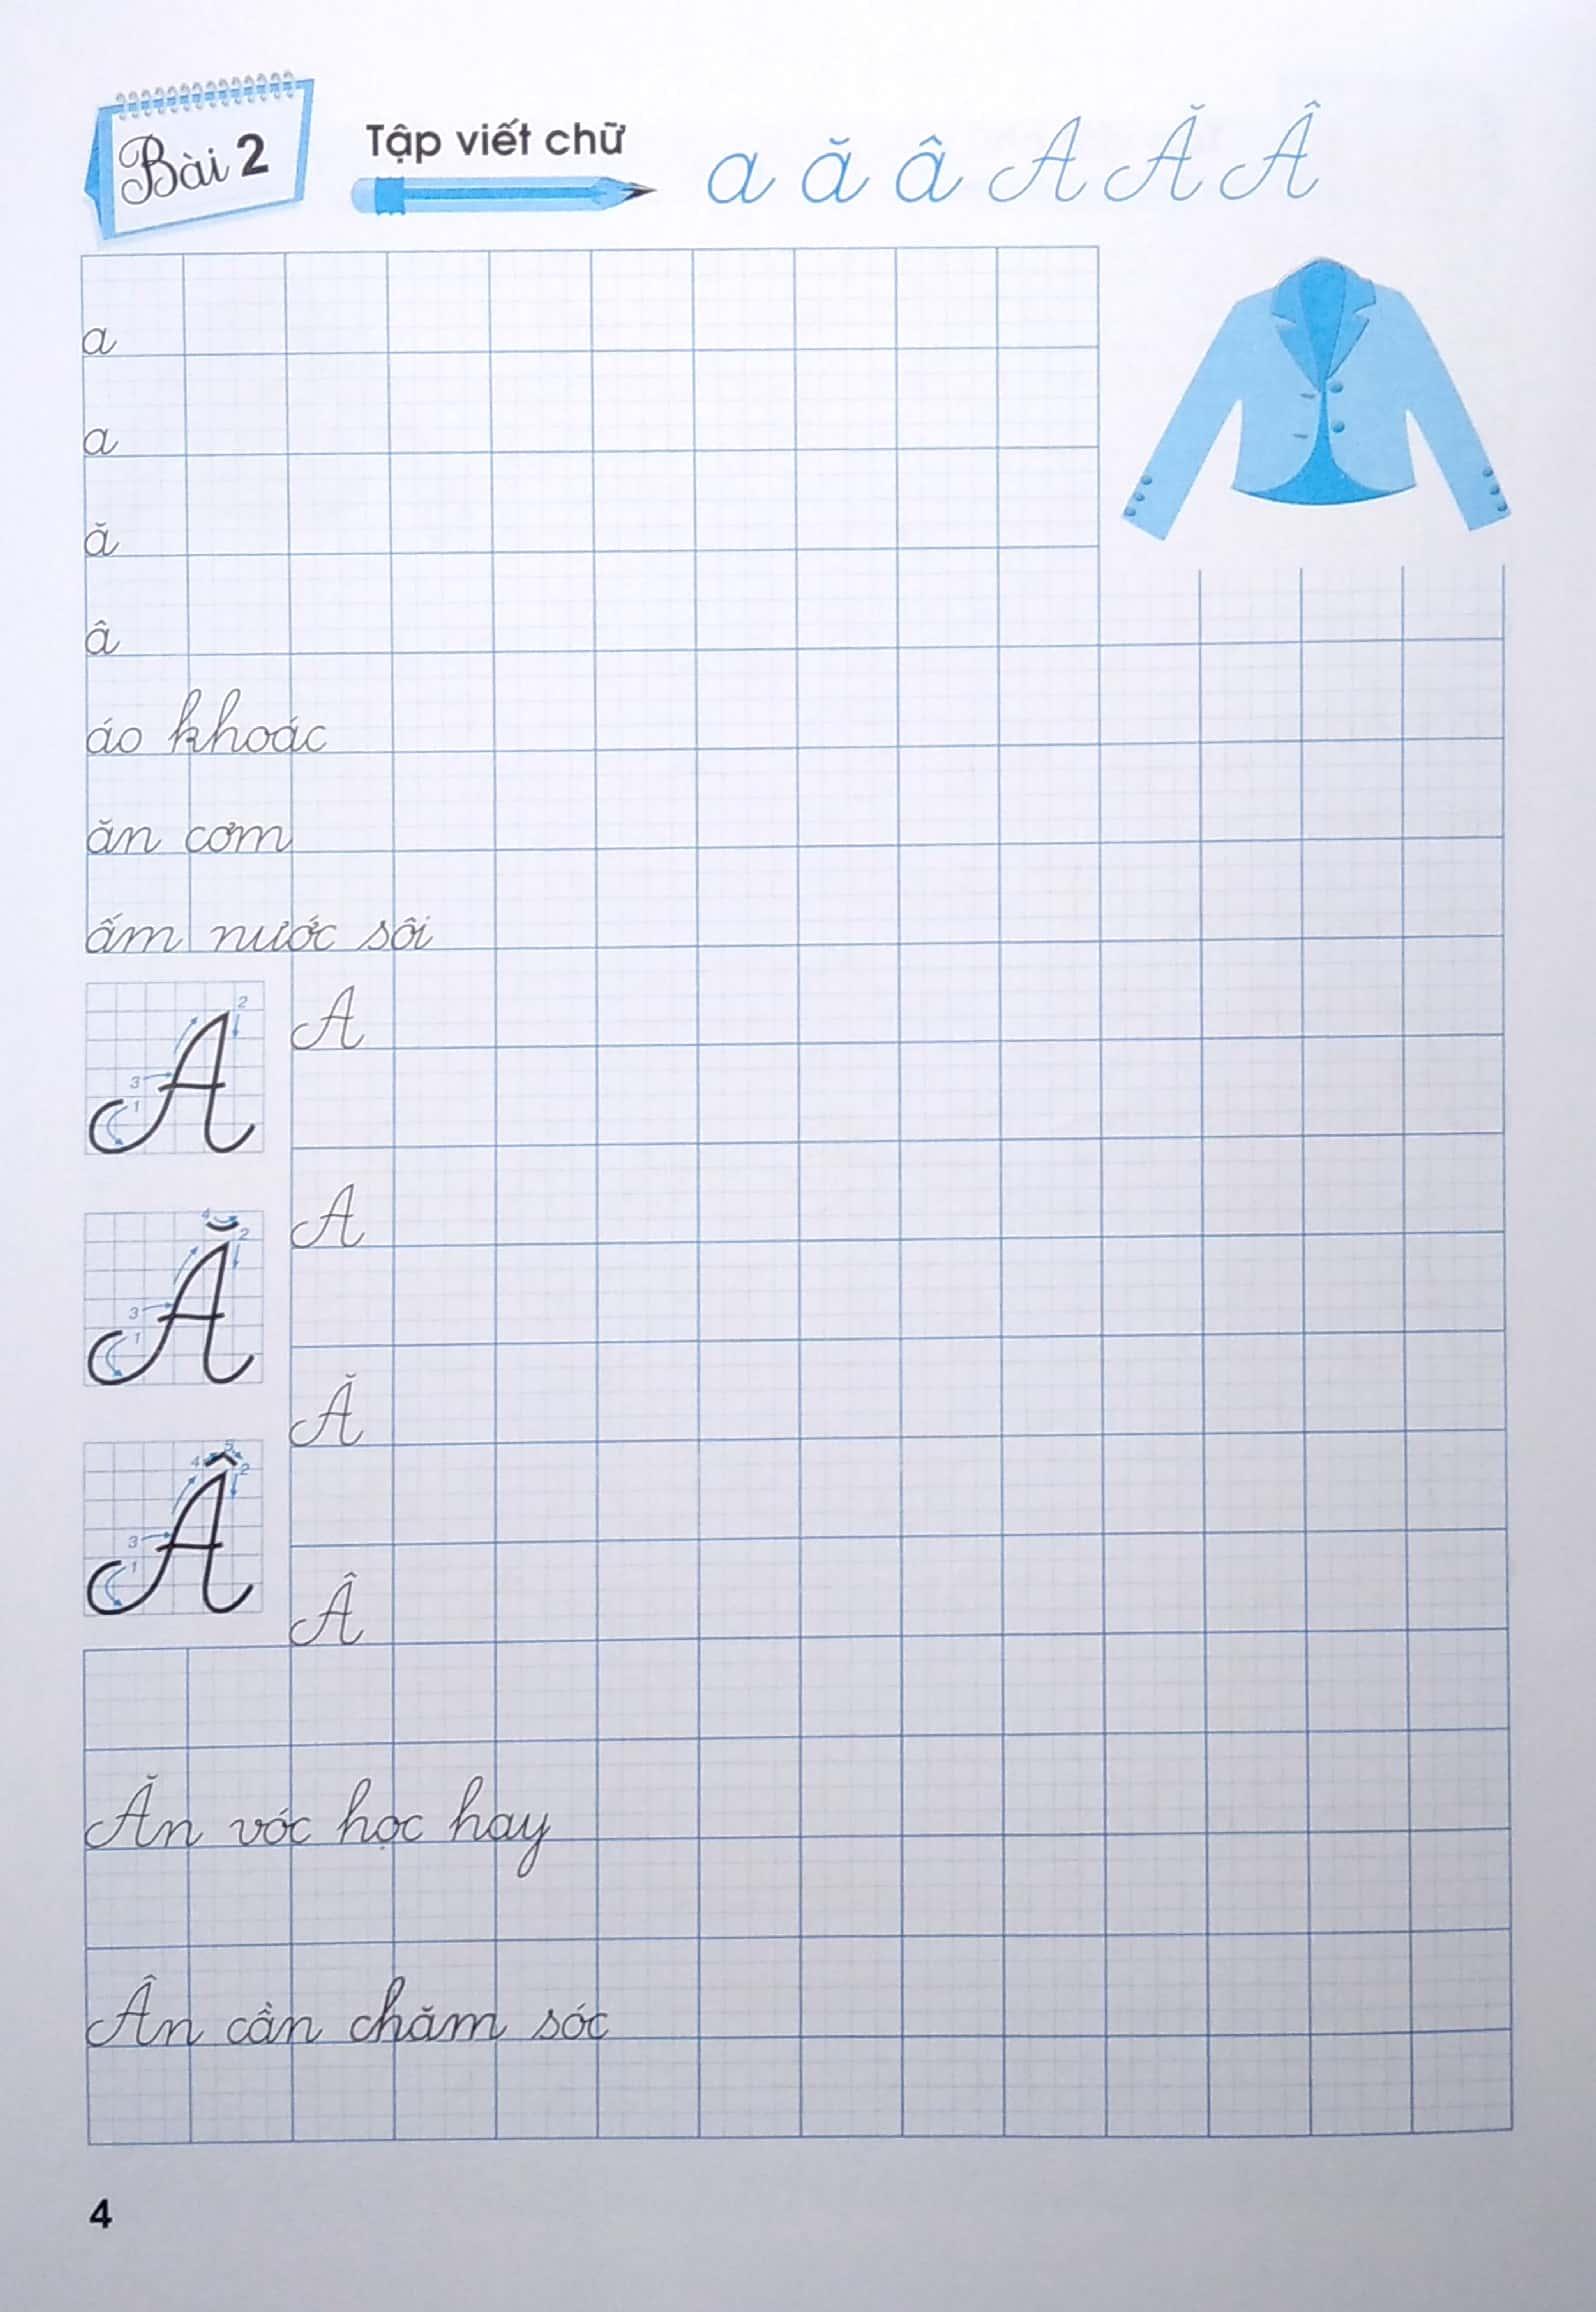 Bài 2
Tập viết chữ a ă â A Ă Â
a
a
ă
â
áo khoác
ăn cơm
ấm nước sôi
A 1 2 3
A
A
Ă 1 2 3 4
Ă
Â 1 2 3 4 5
Â
Ăn vóc học hay
Ân cần chăm sóc
4